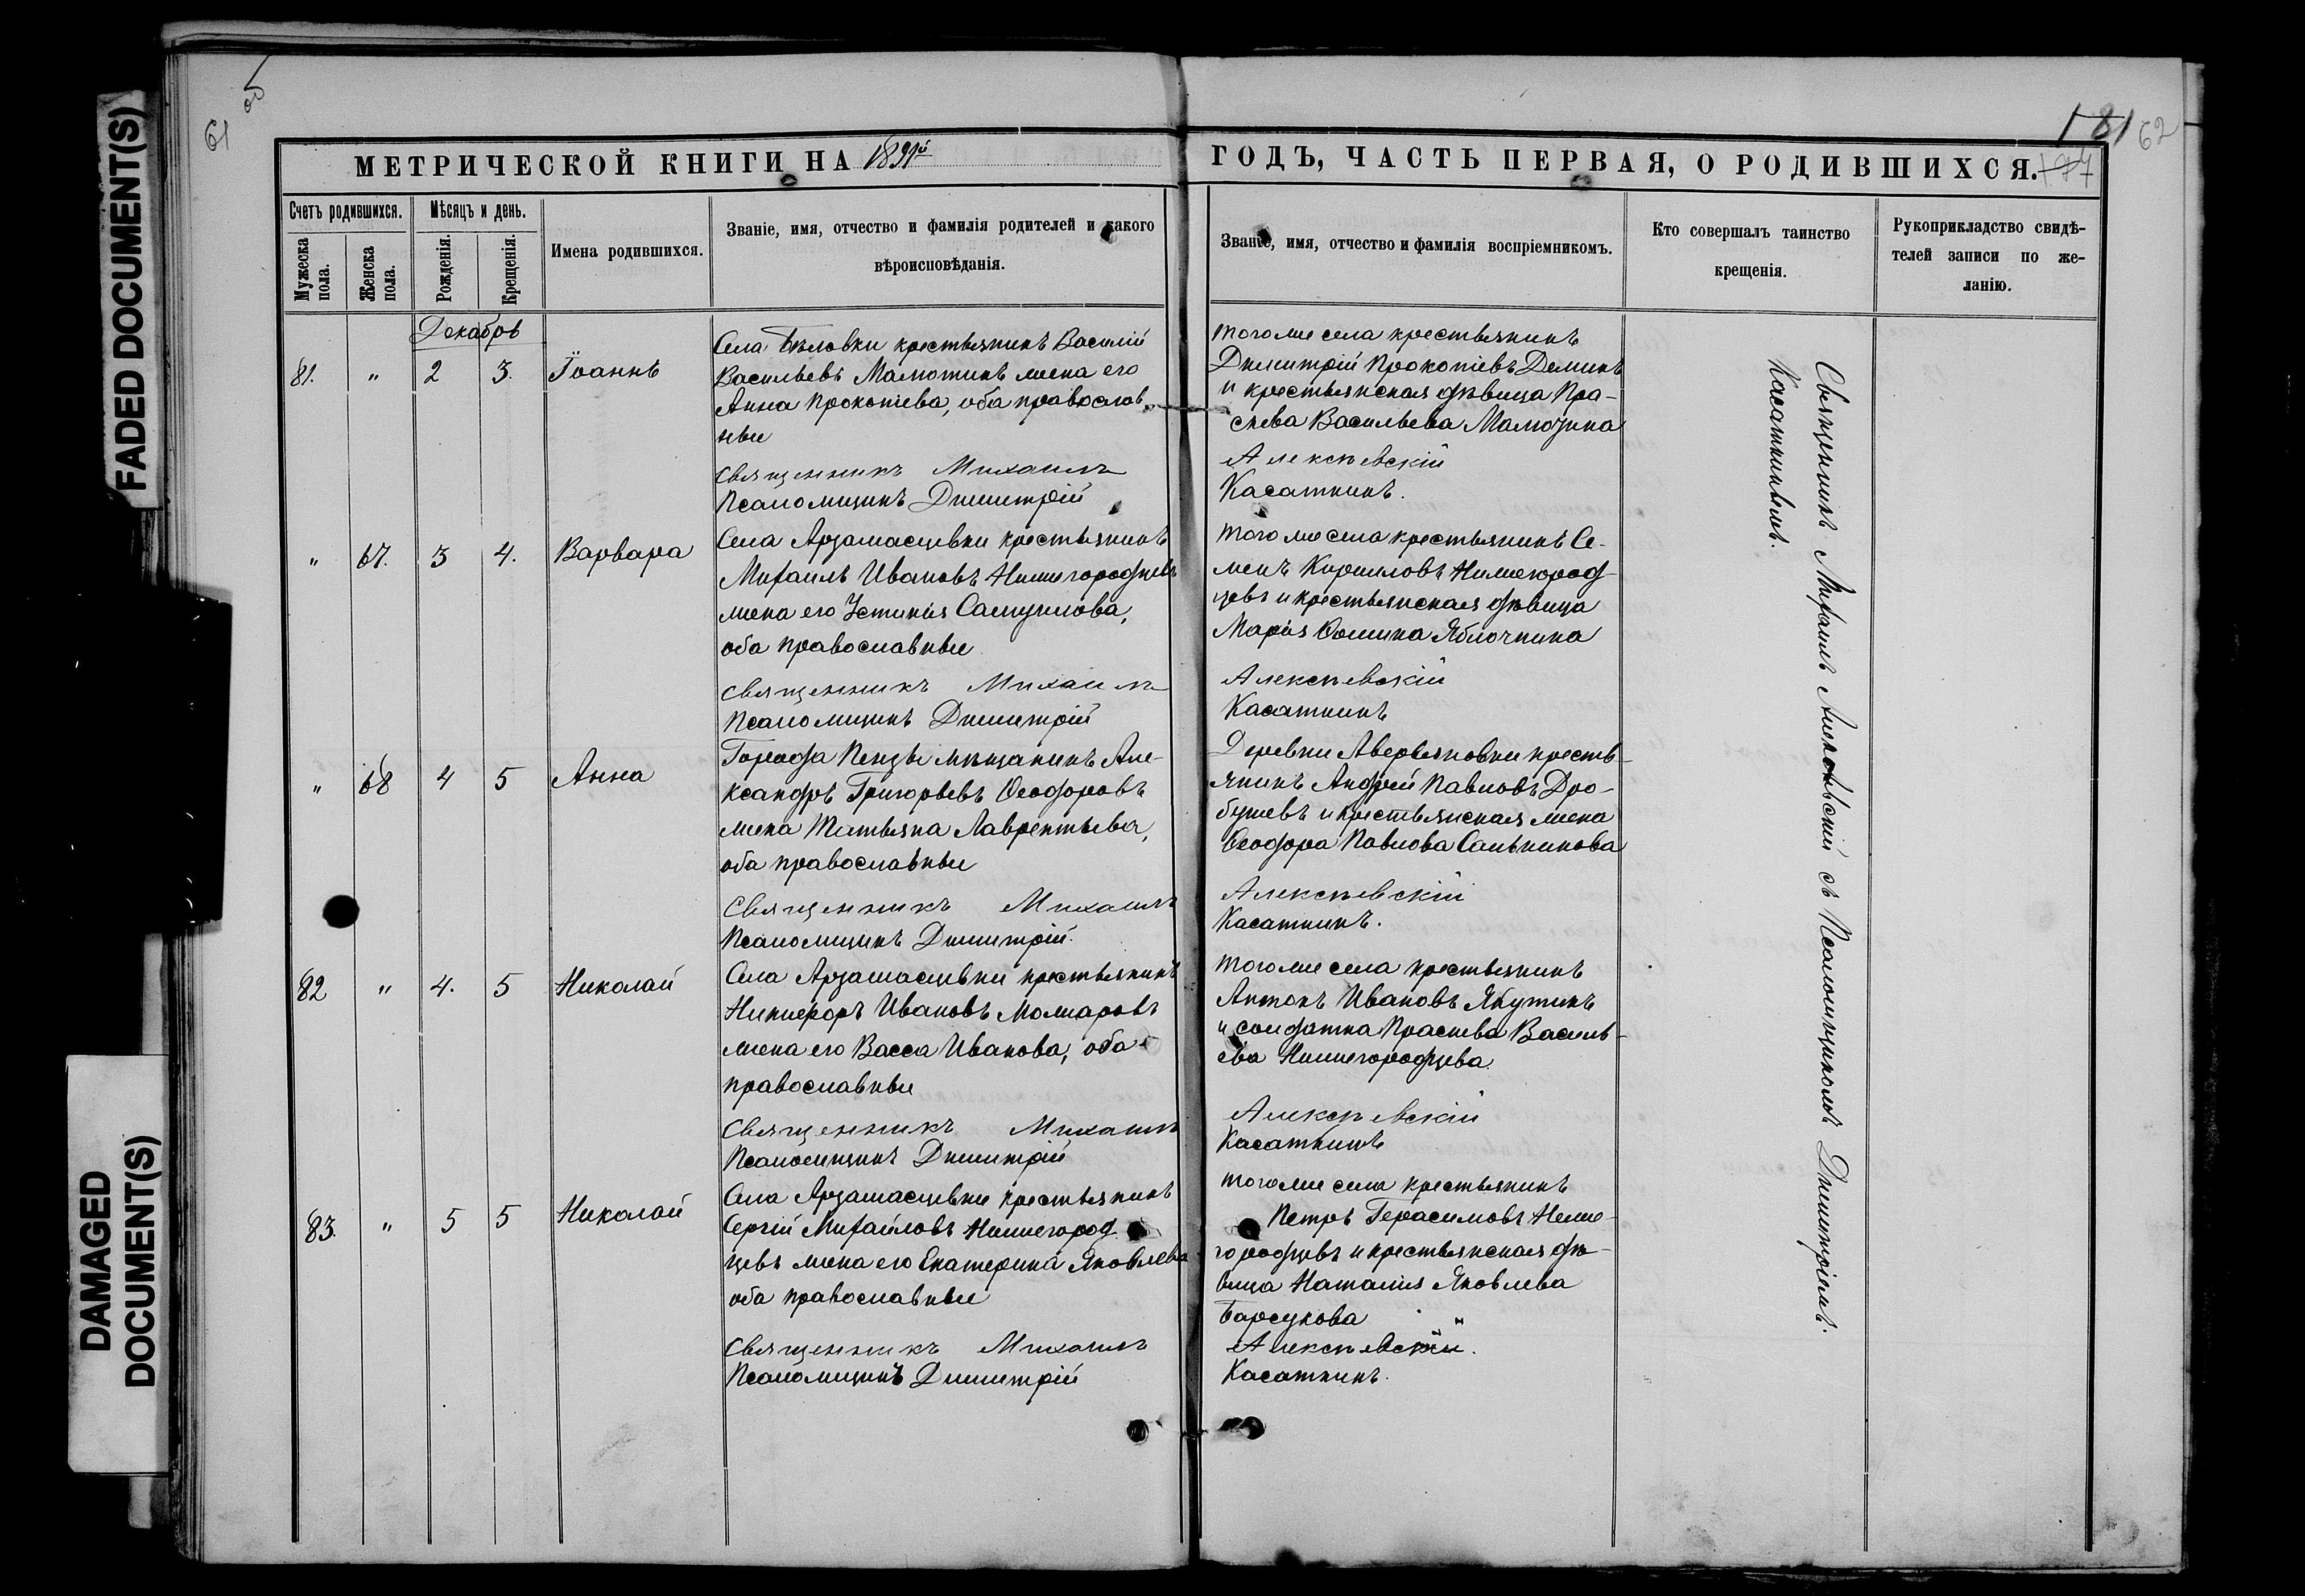 FADED DOCUMENT(S)
DAMAGED DOCUMENT(S)
61 об
181 62
МЕТРИЧЕСКОЙ КНИГИ НА 1891й ГОДЪ, ЧАСТЬ ПЕРВАЯ, О РОДИВШИХСЯ.
Счетъ родившихся.
Мужеска пола.
Женска пола.
Мѣсяцъ и день.
Рожденія.
Крещенія.
Имена родившихся.
Званіе, имя, отчество и фамилія родителей и какого
вѣроисповѣданія.
Званіе, имя, отчество и фамилія воспріемникомъ.
Кто совершалъ таинство
крещенія.
Рукоприкладство свидѣ-
телей записи по же-
ланію.
Декабрь
81. " 2 3. Іоаннъ
Села Бѣловки крестьянинъ Василій
Васильевъ Мамотинъ жена его
Анна Прокопіева, оба православ-
ные
Священникъ Михаилъ
Псаломщикъ Димитрій
того же села крестьянинъ
Димитрій Прокопіевъ Деминъ
и крестьянская дѣвица Пра-
скева Васильева
Алексѣевскій
Касаткинъ.
" 67. 3 4. Варвара
Села Арзамасцевки крестьянинъ
Михаилъ Ивановъ Нижегородцевъ
жена его Устинія Самуилова,
оба православные
Священникъ Михаилъ
Псаломщикъ Димитрій
того же села крестьянинъ Се-
менъ Кирилловъ Нижегород-
цевъ и крестьянская дѣвица
Марія Ѳомина Яблочкина
Алексѣевскій
Касаткинъ
" 68 4 5 Анна
Города Пензы мѣщанинъ Але-
ксандръ Григорьевъ Ѳеодоровъ
жена Татьяна Лаврентьева,
оба православные
Священникъ Михаилъ
Псаломщикъ Димитрій.
Деревни Аверьяновки кресть-
янинъ Андрей Павловъ Дро-
бушевъ и крестьянская жена
Ѳеодора Павлова Сальникова
Алексѣевскій
Касаткинъ.
82 " 4. 5 Николай
Села Арзамасцевки крестьянинъ
Никифоръ Ивановъ
жена его Васса Иванова, оба
православные
Священникъ Михаилъ
Псаломщикъ Димитрій
того же села крестьянинъ
Антонъ Ивановъ Якутинъ
и солдатка Праскева Василь-
ева Нижегородцева.
Алексѣевскій
Касаткинъ
83. " 5 5 Николай
Села Арзамасцевки крестьянинъ
Сергій Михайловъ Нижегород-
цевъ жена его Екатерина Яковлева
оба православные
Священникъ Михаилъ
Псаломщикъ Димитрій
того же села крестьянинъ
Петръ Герасимовъ Ниже-
городцевъ и крестьянская дѣ-
вица Наталія Яковлева
Барсукова
Алексѣевскій.
Касаткинъ.
Священникъ Михаилъ Алексѣевскій съ Псаломщикомъ Димитріемъ
Касаткинымъ.